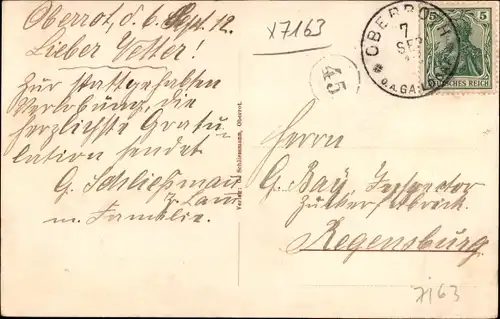 Oberrot, d. 6. Sept. 12.
Lieber Vetter!
Zur stattgehabten
Verlobung, die
herzlichste Gratu-
lation sendet
G. Schließmann
z. Lamm
m. Familie.
x7163
45
OBERROTH
7
SEP
O.A. GAILDORF
5 5
DEUTSCHES REICH
Verlag: Schliessmann, Oberrot.
Herrn
G. Bay, Inspector
Zuckerfabrick.
Regensburg
7163